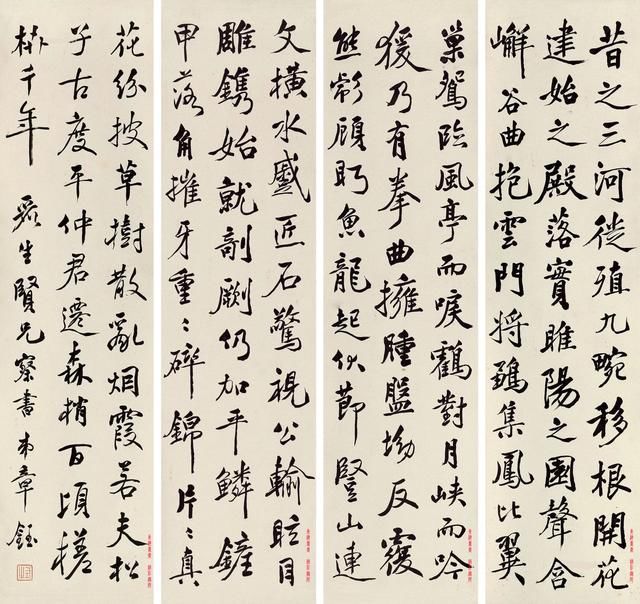 昔之三河徙殖九畹移根開花
建始之殿落實睢陽之園聲含
嶰谷曲抱雲門將鶵集鳳比翼
巢鴛臨風亭而唳鶴對月峽而吟
猨乃有拳曲擁腫盤坳反覆
熊彪顧眄魚龍起伏節豎山連
文橫水蹙匠石驚視公輸眩目
雕鐫始就剞劂仍加平鱗鏟
甲落角摧牙重〻碎錦片〻真
花紛披草樹散亂烟霞若夫松
子古度平仲君遷森梢百頃槎
枿千年
生賢兄察書 弟章鈺